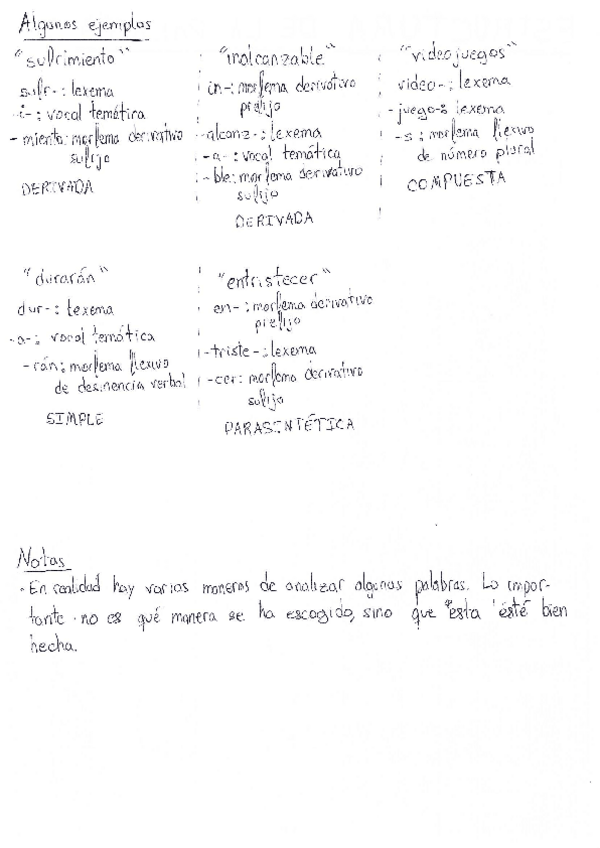 Algunos ejemplos
"sufrimiento"
sufr-: lexema
-i-: vocal temática
-miento: morfema derivativo
sufijo
DERIVADA
"inalcanzable"
in-: morfema derivativo
prefijo
-alcanz-: lexema
-a-: vocal temática
-ble: morfema derivativo
sufijo
DERIVADA
"videojuegos"
video-: lexema
-juego-: lexema
-s: morfema flexivo
de número plural
COMPUESTA
"durarán"
dur-: lexema
-a-: vocal temática
-rán: morfema flexivo
de desinencia verbal
SIMPLE
"entristecer"
en-: morfema derivativo
prefijo
-triste-: lexema
-cer: morfema derivativo
sufijo
PARASINTÉTICA
Notas
· En realidad hay varias maneras de analizar algunas palabras. Lo impor-
tante no es qué manera se ha escogido, sino que ésta esté bien
hecha.